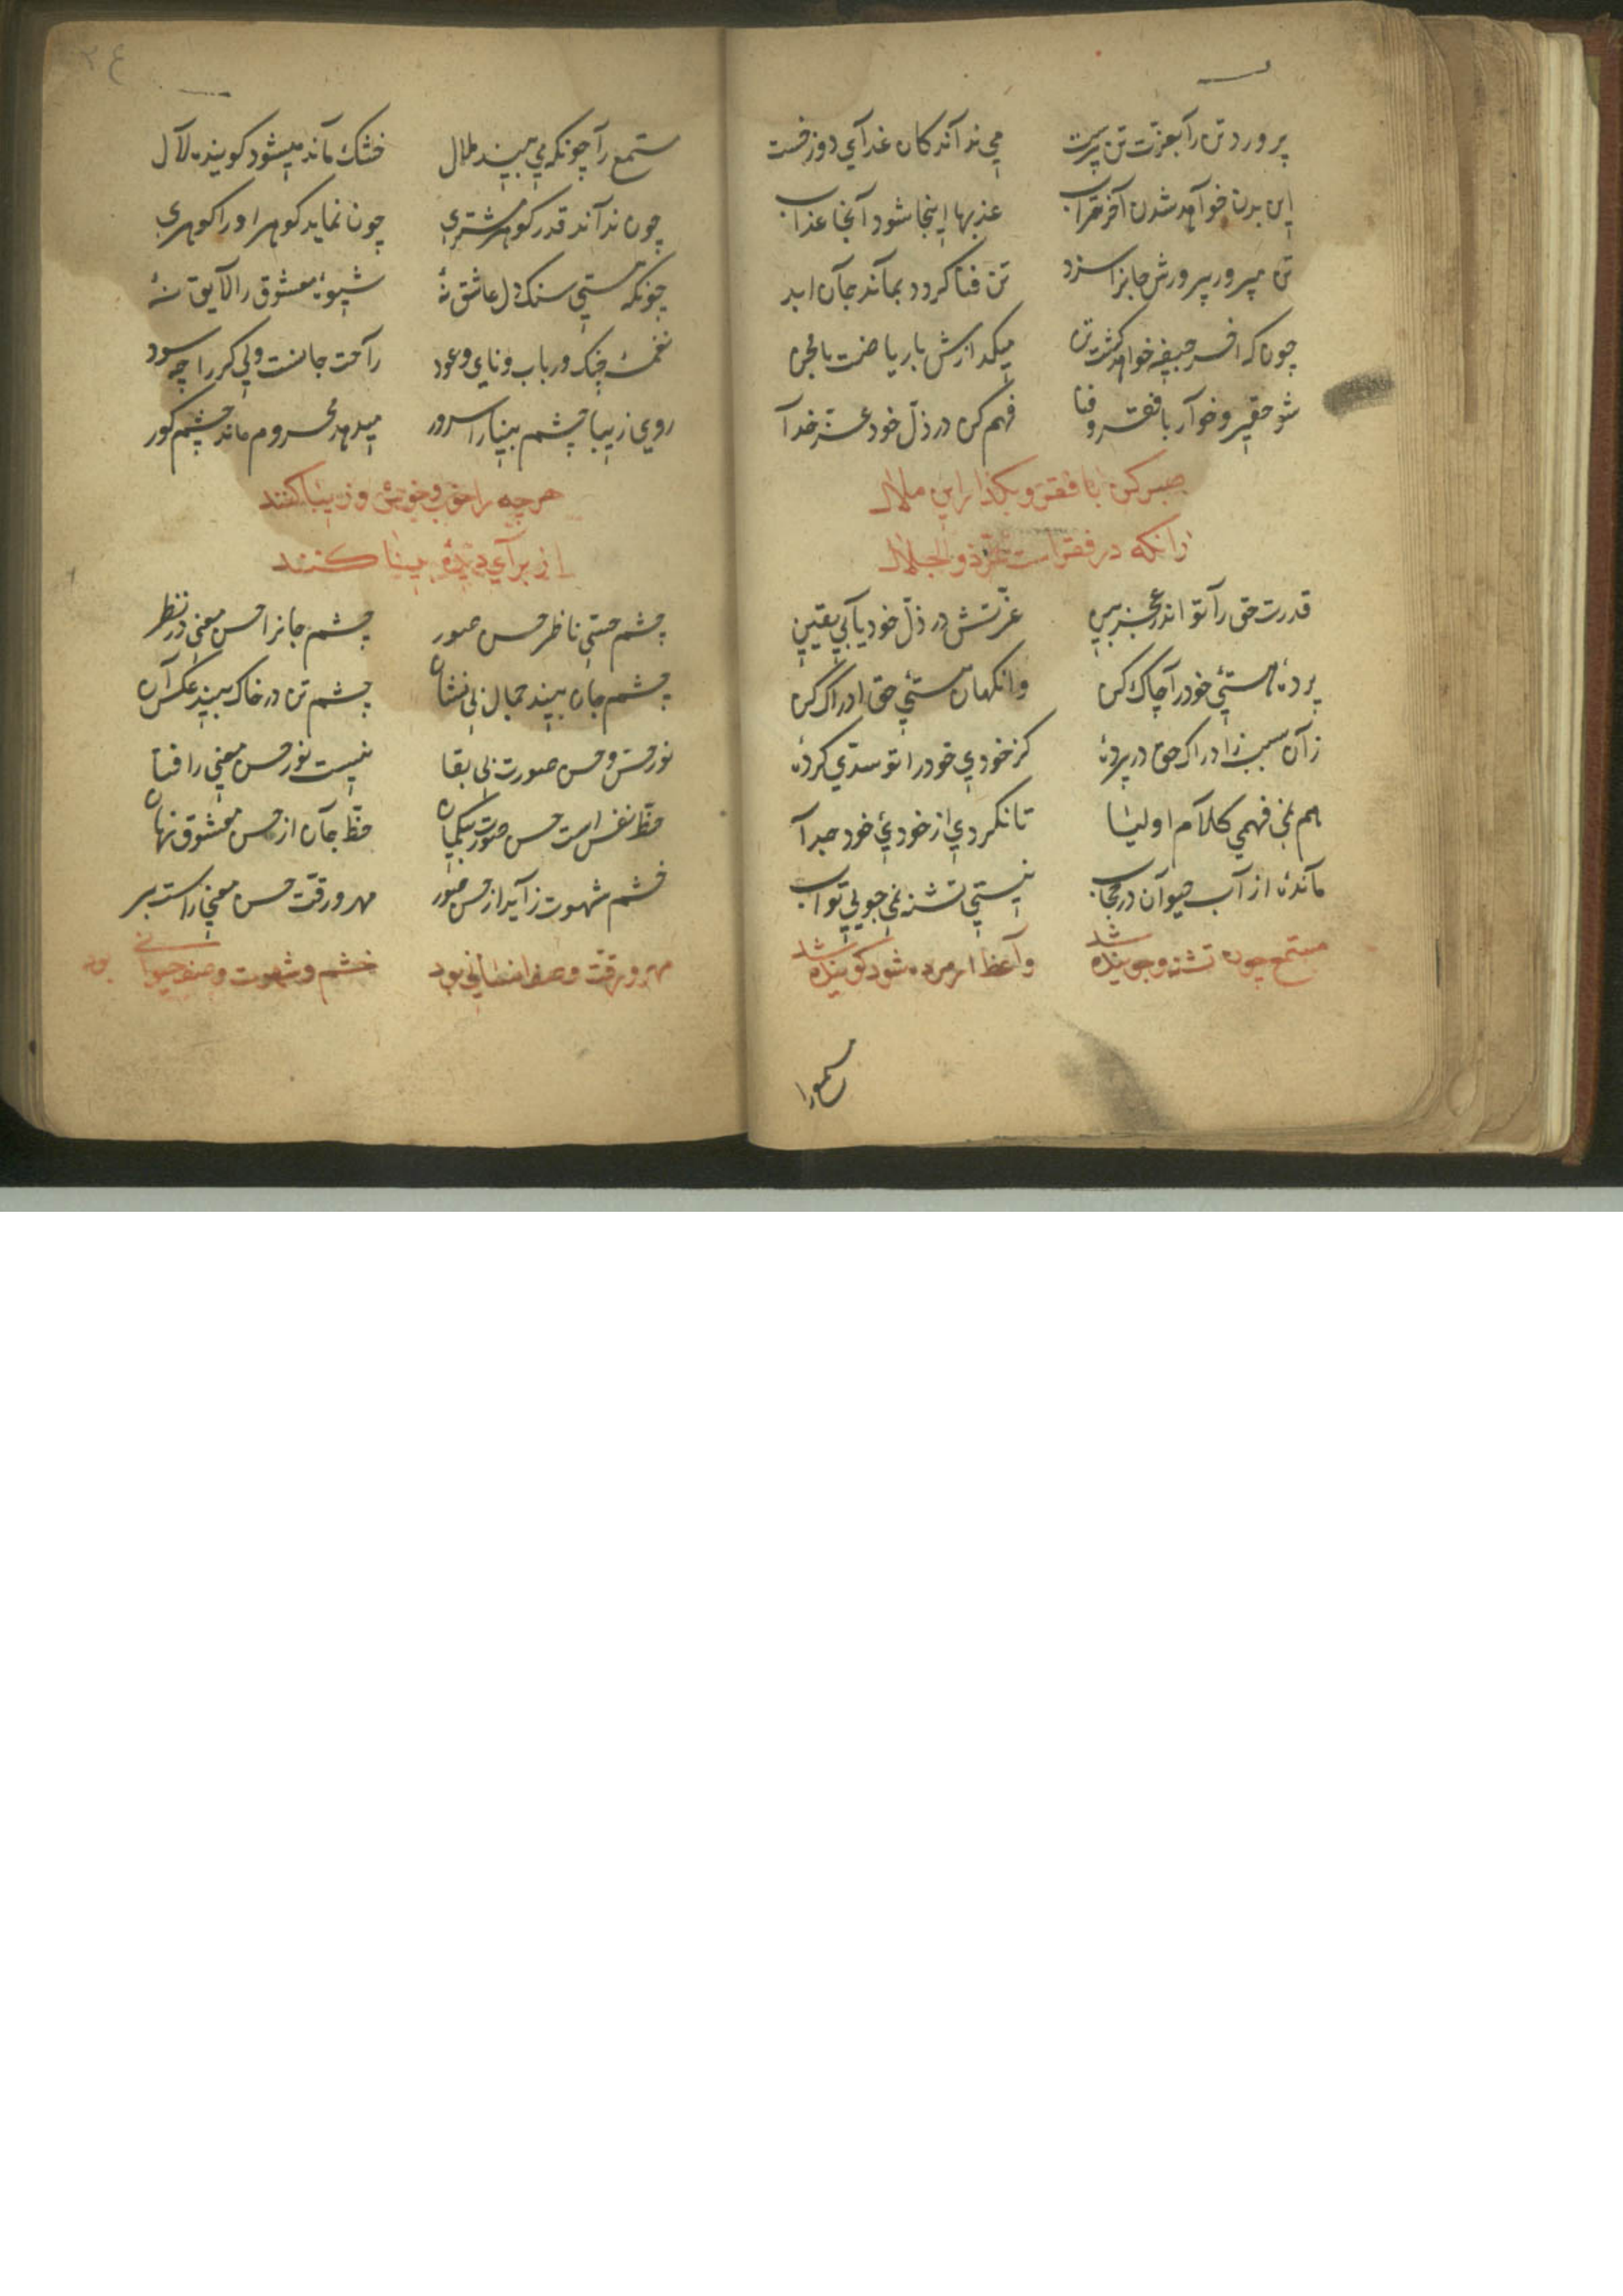 پرورد تن را بعزت تن پرست می نداند کان غذای دوزخست
این بدن خواهد شدن آخر تراب عذبها اینجا شود آنجا عذاب
تن مپرور پرورش جانرا سزد تن فنا کردد بماند جان ابد
چون که اخر جیفه خواهد کشت تن میکدازش با ریاضت یا محن
شو حقیر و خوار با فقر و فنا فهم کن در ذل خود عز خدا
صبر کن با فقر و بکذار این ملال
زانکه در فقر است عز ذوالجلال
قدرت حق را تو اندر عجز بین عزتش در ذل خود یابی یقین
پردهٔ هستیٔ خود را چاک کن وانکهان هستیٔ حق ادراک کن
زان سبب ز ادراک حق در پردهٔ کز خودی خود را تو سدی کردهٔ
هم نمی فهمی کلام اولیا تا نکردی از خودیٔ خود جدا
ماندهٔ از آب حیوان در حجاب نیستی تشنه نمی جویی تو آب
مستمع چون تشنه و جوینده شد واعظ ار مرده شود کوینده شد
مستمع را
۳۴
مستمع را چونکه می بیند ملال خشک ماند میشود کوینده لال
چون نداند قدر کوهر مشتری چون نماید کوهر او را کوهری
چونکه هستی سنک دل عاشق نهٔ شیوهٔ معشوق را لایق نهٔ
نغمهٔ چنک و رباب و نای و عود راحت جانست ولی کر را چه سود
روی زیبا چشم بینا را سرور میدهد محروم ماند چشم کور
هرچه را خوب و خوش و زیبا کنند
از برای دیدهٔ بینا کنند
چشم حسی ناظر حسن صور چشم جانرا حسن معنی در نظر
چشم جان بیند جمال بی نشان چشم تن در خاک بیند عکس آن
نور حس و حسن صورت بی بقا نیست نور حسن معنی را فنا
حظ نفس است حسن صورت بیکمان حظ جان از حسن معشوق نهان
خشم شهوت زاید از حسن صور مهر و رقت حسن معنی راست بر
مهر و رقت وصف انسانی بود خشم و شهوت وصف حیوانی بود